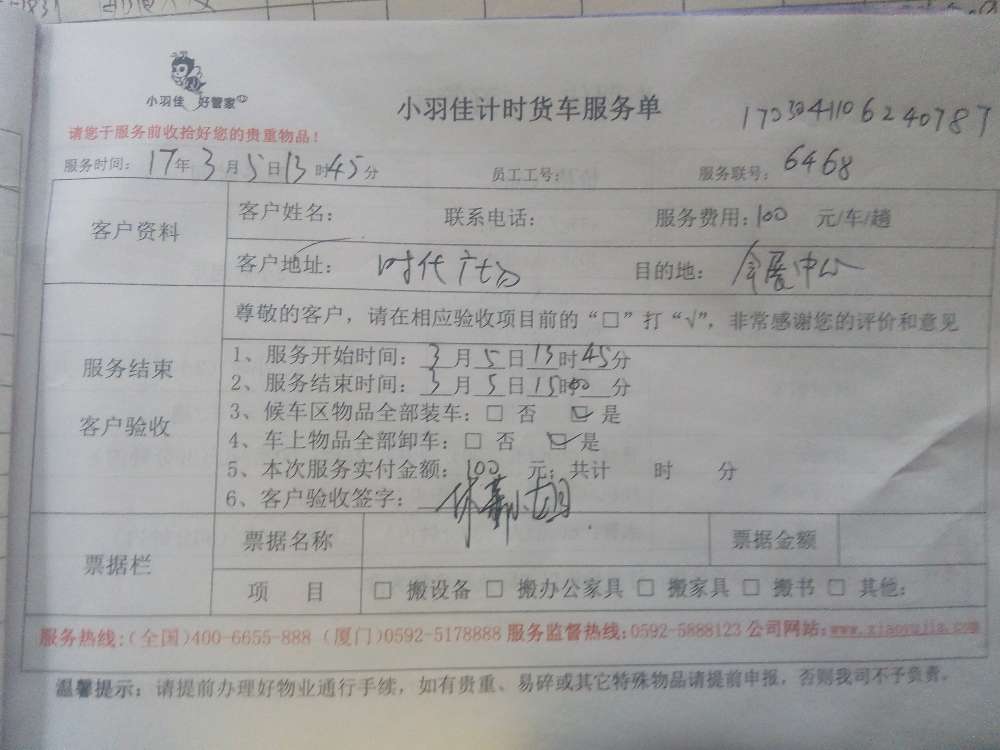 小羽佳 好管家
小羽佳计时货车服务单
请您于服务前收拾好您的贵重物品！
服务时间：17年3月5日13时45分 员工工号： 服务联号：6468
客户资料
客户姓名： 联系电话： 服务费用：100 元/车/趟
客户地址：时代广场 目的地：会展中心
尊敬的客户，请在相应验收项目前的“□”打“√”，非常感谢您的评价和意见
服务结束
客户验收
1、服务开始时间：3月5日13时45分
2、服务结束时间：3月5日15时00分
3、候车区物品全部装车：□ 否 ☑ 是
4、车上物品全部卸车：□ 否 ☑ 是
5、本次服务实付金额：100 元；共计 时 分
6、客户验收签字：
票据栏
票据名称 票据金额
项 目 □ 搬设备 □ 搬办公家具 □ 搬家具 □ 搬书 □ 其他：
服务热线：(全国)400-6655-888 (厦门)0592-5178888 服务监督热线：0592-5888123 公司网站：www.xiaoyujia.com
温馨提示：请提前办理好物业通行手续，如有贵重、易碎或其它特殊物品请提前申报，否则我司不予负责。